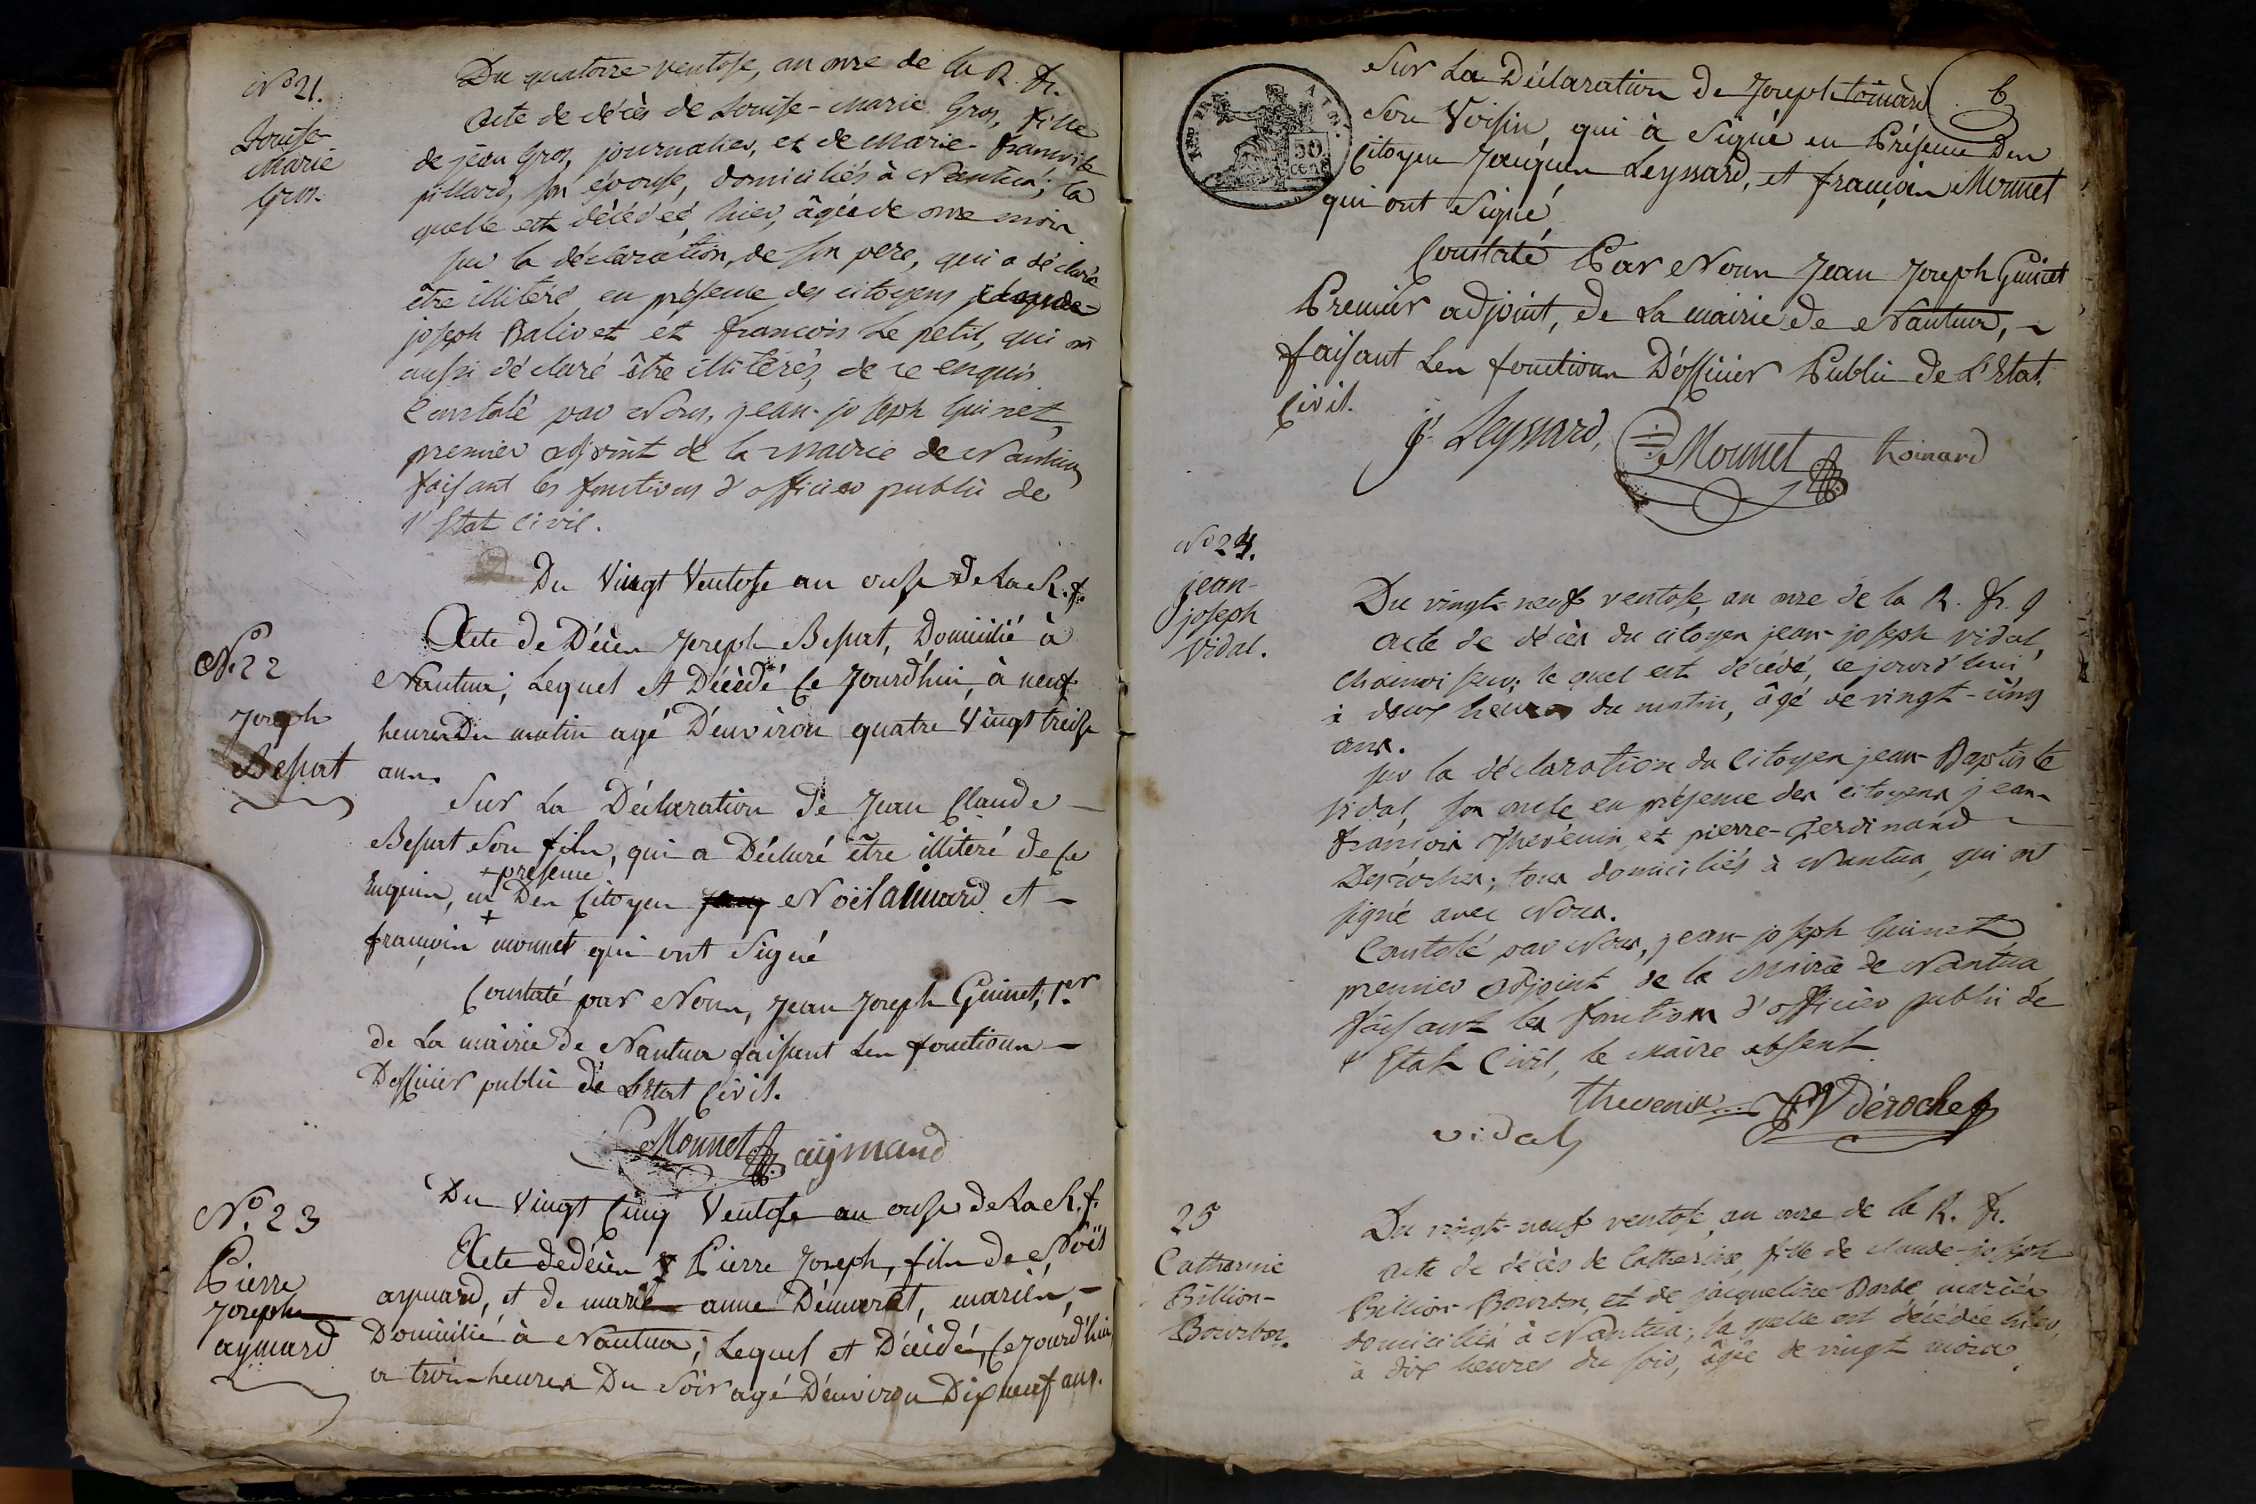 No 21.
Louise-
Marie
Gros.
Du quatorze ventose, an onze de la R. fr.
Acte de décès de Louise-Marie Gros, fille
de jean Gros, journalier, et de Marie francoise
pillard, son épouse, domiciliés à Nantua; la
quelle est décédée, hier, âgée de onze mois.
sur la déclaration, de son pere, qui a déclaré
être illitéré, en présence des citoyens
joseph Balivet et françois Le petit, qui ont
aussi déclaré être illitérés, de ce enquis.
Constaté par Nous, jean-joseph Guinet,
premier adjoint de la Mairie de Nantua,
faisant les fonctions d'officier public de
l'Etat civil.
Du Vingt Ventose an onse de La R. f.
No. 22
Joseph
Besuat
Acte de Décès Joseph Besuat, Domicilié à
Nantua; Lequel et Décèdé Ce Jourd'hui, à neuf
heures Du matin agé D'environ quatre Vingt treise
ans.
Sur La Déclaration de Jean Claude
Besuat Son fils, qui a Déclaré être illitéré de Ce
+ présence
Enquis, en + Des Citoyen Noël aimard et
françois monnet qui ont Signé
Constaté par Nous, Jean Joseph Guinet, 1.er
de La mairie de Nantua faisant Les fonctions
D'officier public de L'Etat Civil.
Monnet aijmand
No. 23
Pierre
Joseph
aymard
Du Vingt Cinq Ventose an onse de La R. f.
Acte de décès Pierre Joseph, fils de Noël
aymard, et de marie anne Démurat, mariés,
Domicilié à Nantua; Lequel et Décèdé, Ce jourd'hui,
a trois heures Du Soir agé D'environ Dix neuf ans.
6
Sur La Déclaration De Joseph toinard
Son Voisin, qui à Signé en Présence Des
Citoyen Jacques Leyssard, et françois Monnet
qui ont Signé
Constaté Par Nous Jean Joseph Guinet
Premier adjoint, de La mairie de Nantua,
faisant Les fonctions D'officier Public de L'Etat
Civil.
Leyssard, Monnet toinard
No 24.
jean-
joseph
Vidal.
Du vingt-neuf ventose, an onze de la R. fr.
Acte de décès du citoyen jean-joseph vidal,
Chamoiseur; le quel est décédé, ce jourd'hui
à deux heures du matin, âgé de vingt-cinq
ans.
sur la déclaration du Citoyen jean-Baptiste
Vidal, son oncle en présence des citoyens jean-
françois Thévenin, et pierre-Ferdinand
Desroches; tous domiciliés à Nantua, qui ont
signé avec Nous.
Constaté par Nous, jean-joseph Guinet
premier adjoint de la Mairie de Nantua
faisant les fonctions d'officier public de
l'Etat Civil, le Maire absent.
thevenin déroches
vidal
25
Catherine
Billion-
Bourbon.
Du vingt-neuf ventose, an onze de la R. fr.
acte de décès de Catherine, fille de claude-joseph
Billion-Bourbon, et de jacqueline Barbe mariés
domiciliés à Nantua; la quelle est décédée hier,
à dix heures du soir, âgée de vingt mois.